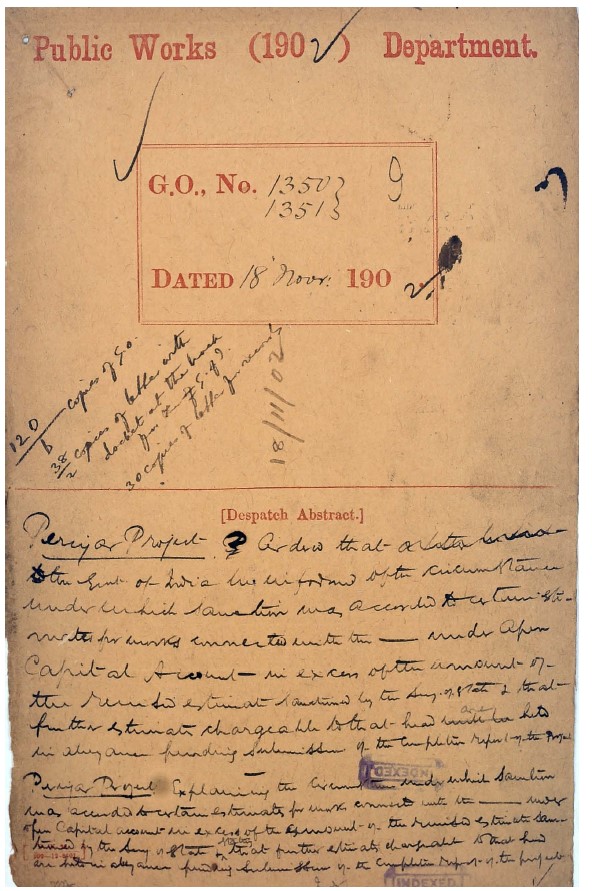 Public Works (1902) Department.
G.O., No. 1350}
1351}
9
DATED 18 Novr: 1902.
120 copies of G.O.
6
38 copies of letter with
2
docket at the back
for
30 copies of letter for records
18/11/02
[Despatch Abstract.]
Periyar Project. Orders that
the Govt. of India be informed of the circumstances
under which sanction was accorded to certain esti-
mates for works connected with the — under open
Capital Account in excess of the amount of
the revised estimate sanctioned by the Secy. of State & that
further estimates chargeable to that head are held
in abeyance pending submission of the Completion report of the Project
INDEXED
Periyar Project. Explaining the circumstances under which sanction
was accorded to certain estimates for works connected with the — under
open Capital account in excess of the amount of the revised estimate sanc-
tioned by the Secy of State & that further estimates chargeable to that head
are held in abeyance pending submission of the Completion Report of the project
INDEXED